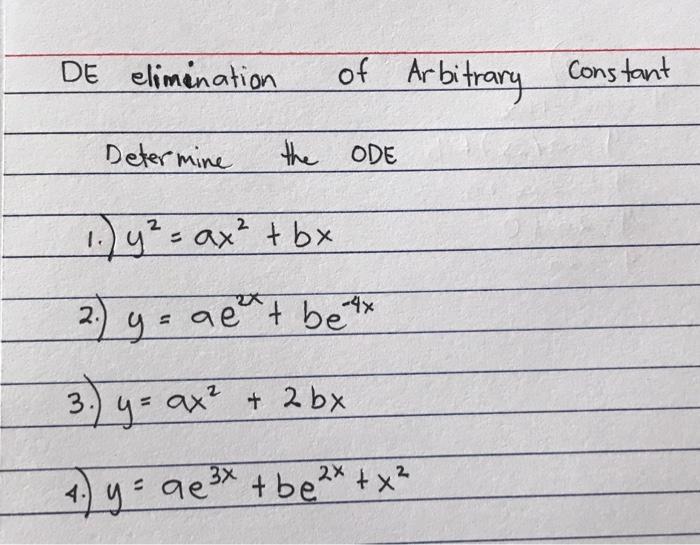 DE elimination of Arbitrary Constant
Determine the ODE
1.) y² = ax² + bx
2.) y = ae²ˣ + be⁻⁴ˣ
3.) y = ax² + 2bx
4.) y = ae³ˣ + be²ˣ + x²